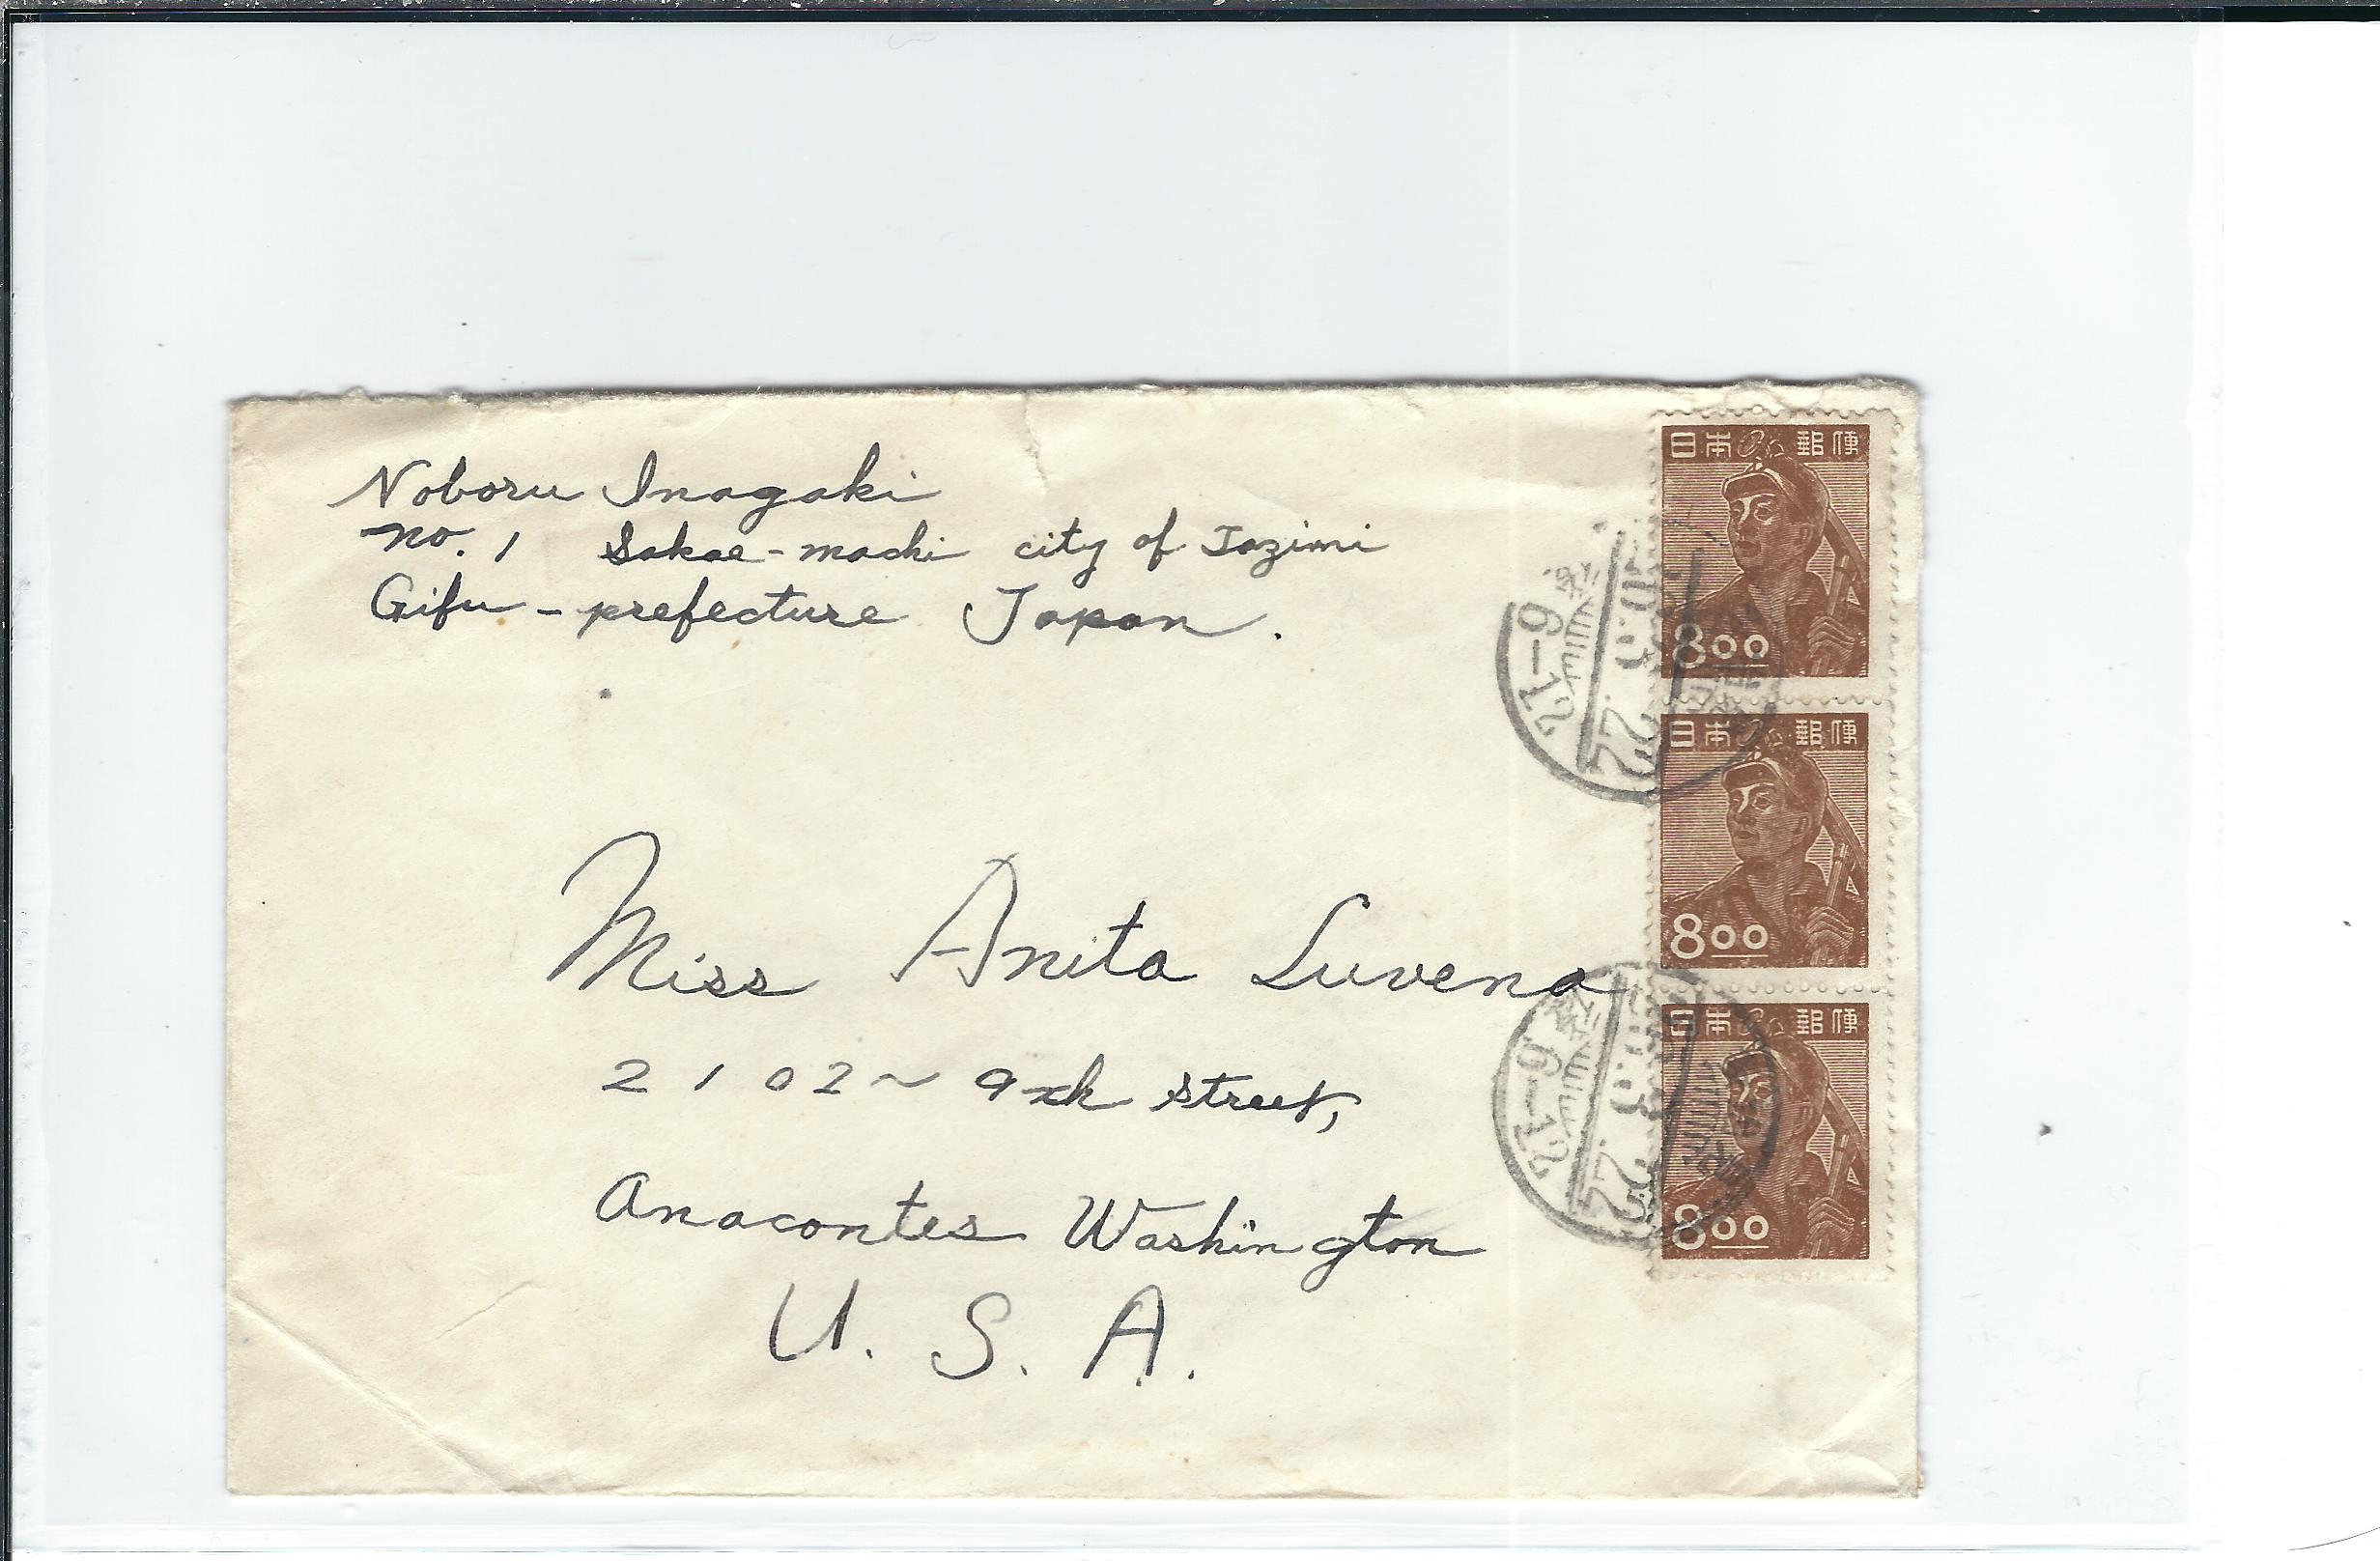 Noboru Inagaki
no. 1 Sakae-machi city of Tazimi
Gifu-prefecture Japan.
Miss Anita Luvena
2102~9th street,
Anacontes Washington
U. S. A.
日本郵便
8.00
日本郵便
8.00
日本郵便
8.00